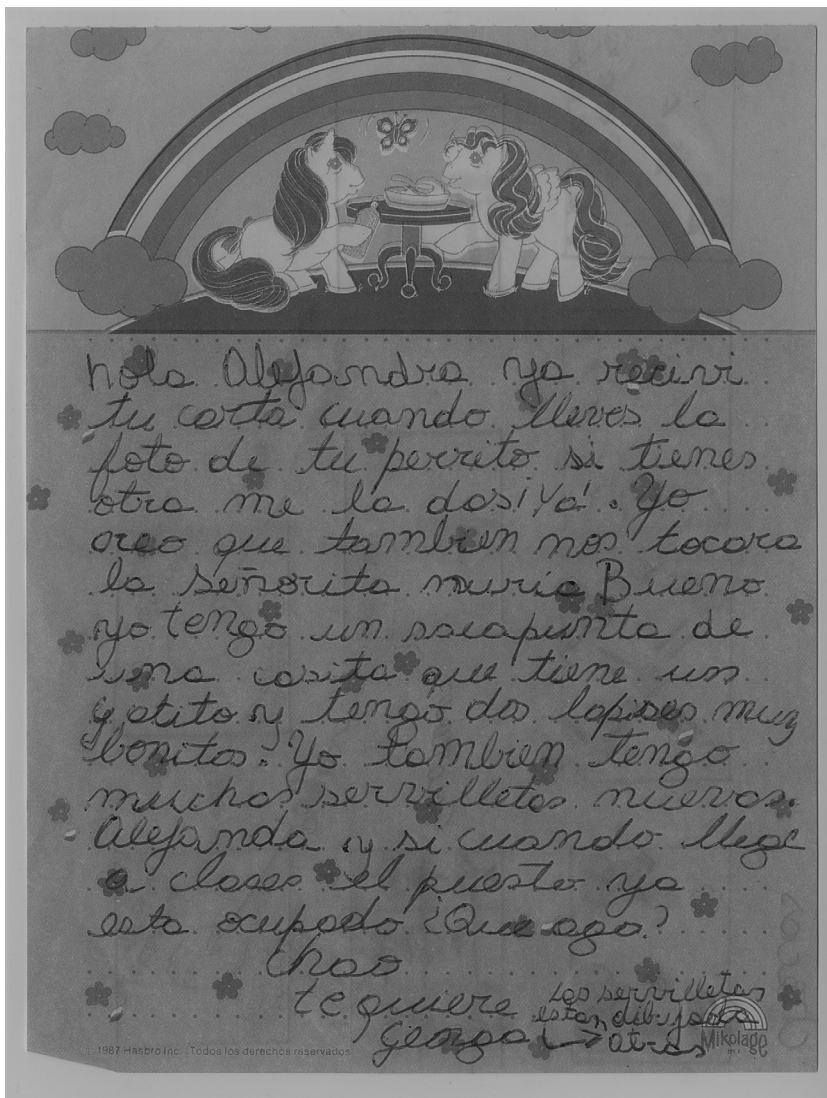 hola Alejandra ya recivi
tu carta cuando lleves la
foto de tu perrito si tienes
otra me la das ¡Ya! Yo
creo que tambien nos tocara
la señorita nuria Bueno
yo tengo un sacapunta de
una casita que tiene un
gatito y tengo dos lapises muy
bonitos. Yo tambien tengo
muchas servilletas nuevas.
Alejanda y si cuando llege
a clases el puesto ya
esta ocupado ¿Que ago?
chao
te quiere
Georga
Las servilletas
estan dibujada
atras
1987 Hasbro Inc. Todos los derechos reservados
Mikolage